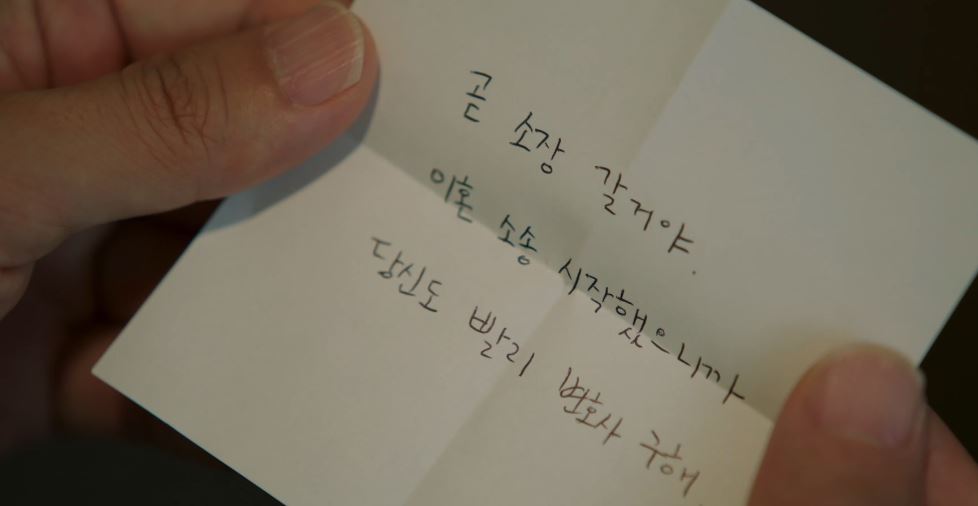 곧 소장 갈거야.
이혼 소송 시작했으니까
당신도 빨리 변호사 구해